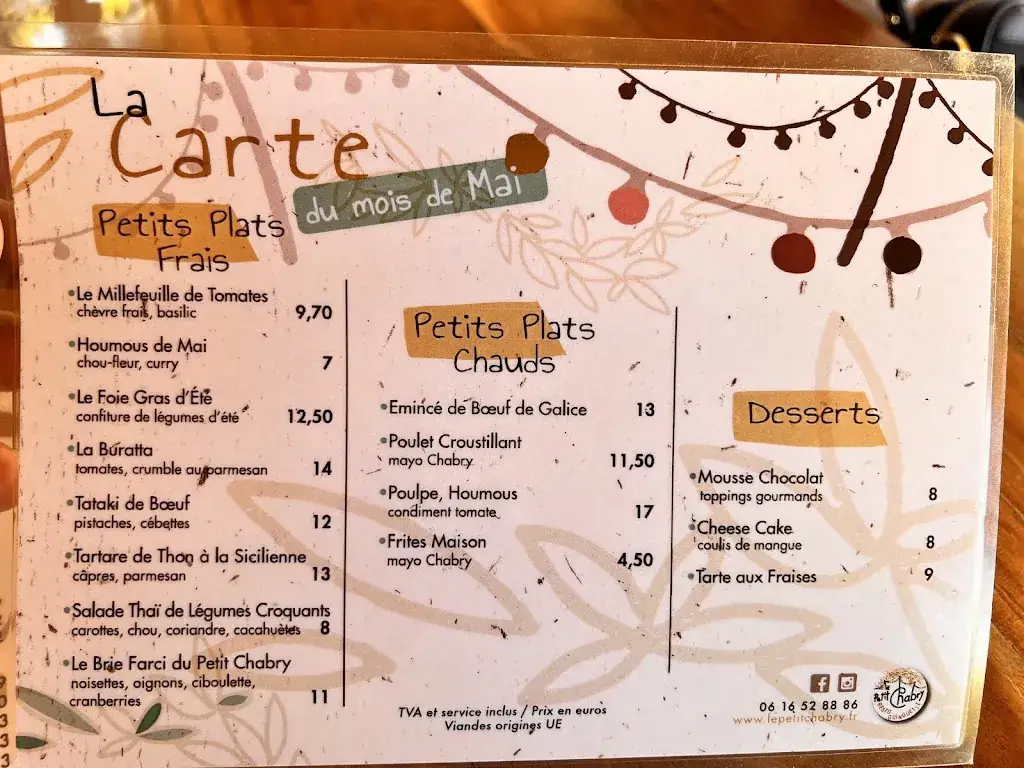 La
Carte
du mois de Mai
Petits Plats
Frais
•Le Millefeuille de Tomates
chèvre frais, basilic 9,70
•Houmous de Mai
chou-fleur, curry 7
•Le Foie Gras d'Été
confiture de légumes d'été 12,50
•La Buratta
tomates, crumble au parmesan 14
•Tataki de Bœuf
pistaches, cébettes 12
•Tartare de Thon à la Sicilienne
câpres, parmesan 13
•Salade Thaï de Légumes Croquants
carottes, chou, coriandre, cacahuètes 8
•Le Brie Farci du Petit Chabry
noisettes, oignons, ciboulette,
cranberries 11
Petits Plats
Chauds
•Emincé de Bœuf de Galice 13
•Poulet Croustillant
mayo Chabry 11,50
•Poulpe, Houmous
condiment tomate 17
•Frites Maison
mayo Chabry 4,50
TVA et service inclus / Prix en euros
Viandes origines UE
Desserts
•Mousse Chocolat
toppings gourmands 8
•Cheese Cake
coulis de mangue 8
•Tarte aux Fraises 9
06 16 52 88 86
www.lepetitchabry.fr
Chabry